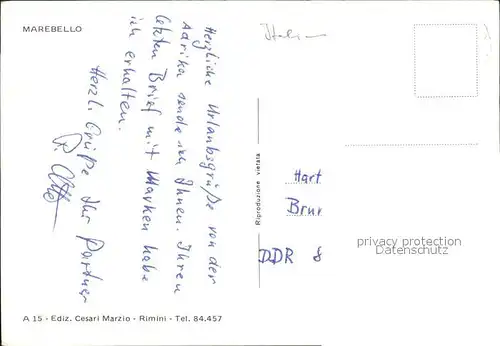 MAREBELLO
Italien
Herzliche Urlaubsgrüße von der
Adria sende ich Ihnen. Ihren
letzten Brief mit Marken habe
ich erhalten.
Herzl. Grüße Ihr Partner
Hart
Brun
DDR 8
privacy protection
Datenschutz
Riproduzione vietata
A 15 - Ediz. Cesari Marzio - Rimini - Tel. 84.457